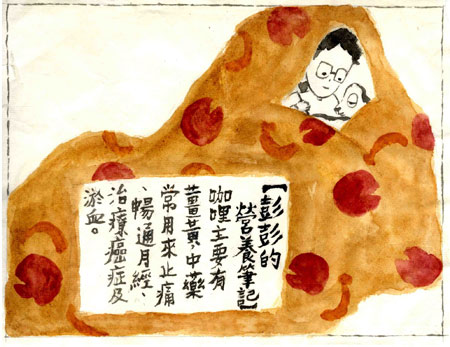 【彭彭的
營養筆記】
咖哩主要有
薑黃,中藥
常用來止痛
、暢通月經、
治療癌症及
淤血。